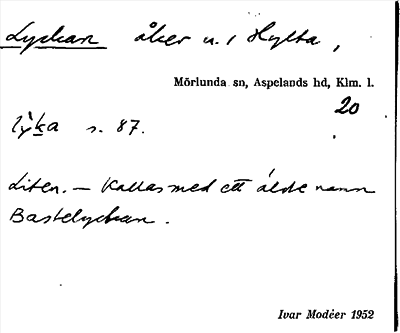 Lyckan åker u. 1 Hylta,
Mörlunda sn, Aspelands hd, Klm. l.
20
lyka s. 87.
Liten. — Kallas med ett äldre namn
Bastelyckan.
Ivar Modéer 1952